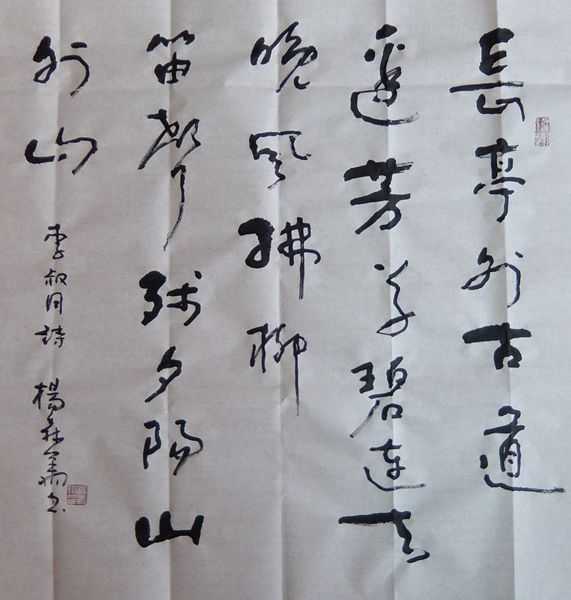 長亭外古道
邊芳草碧連天
晚風拂柳
笛聲殘夕陽山
外山
李叔同詩 楊